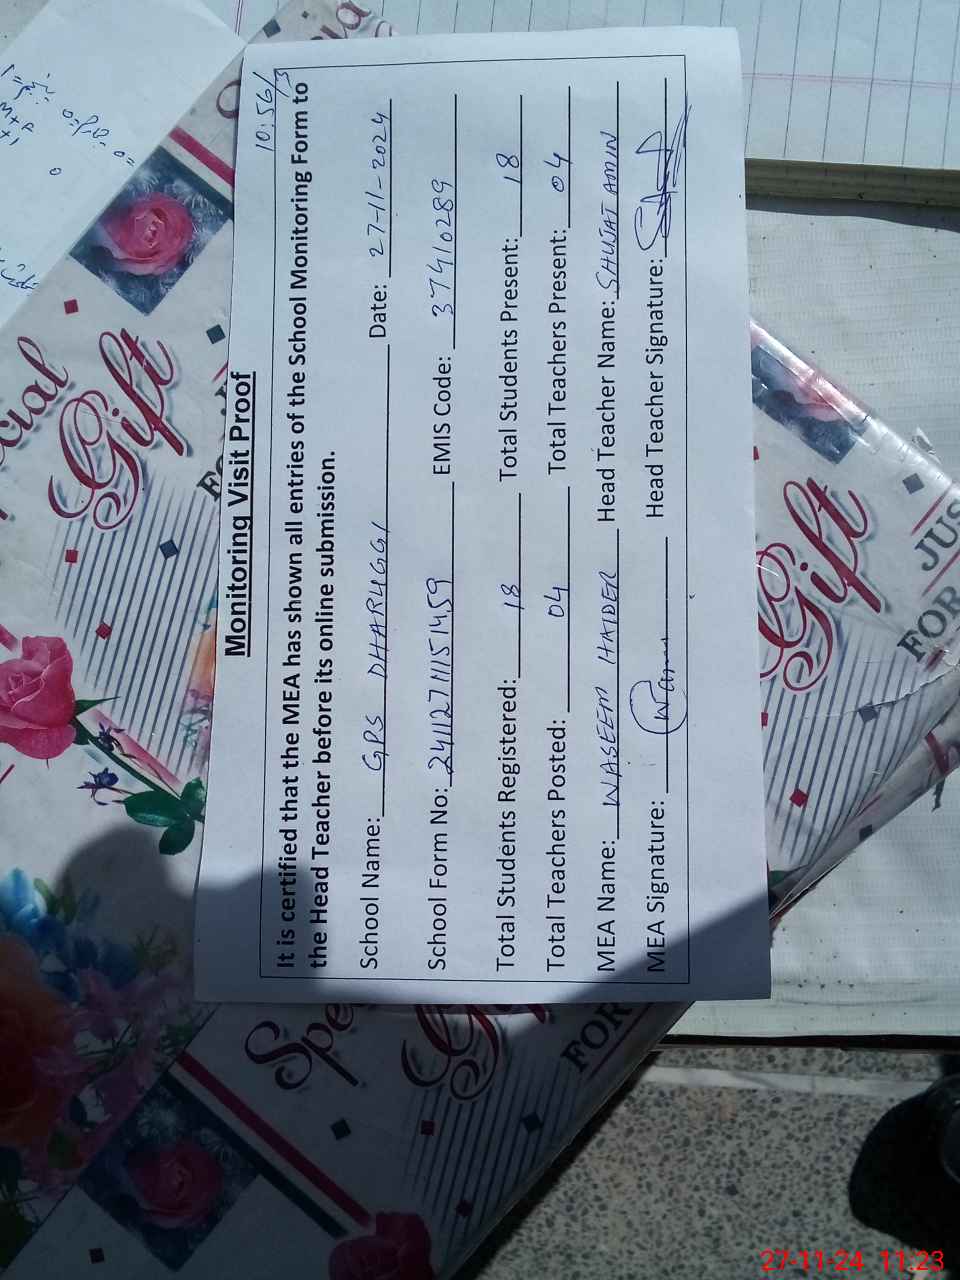 10:56/3
Monitoring Visit Proof
It is certified that the MEA has shown all entries of the School Monitoring Form to
the Head Teacher before its online submission.
School Name: GPS DHARUGGI Date: 27-11-2024
School Form No: 241127111511459 EMIS Code: 37410289
Total Students Registered: 18 Total Students Present: 18
Total Teachers Posted: 04 Total Teachers Present: 04
MEA Name: WASEEM HAIDER Head Teacher Name: SHUJAT AMIN
MEA Signature: Head Teacher Signature:
Gift
Gift
FOR JUS
Spe
FOR
27-11-24 11:23